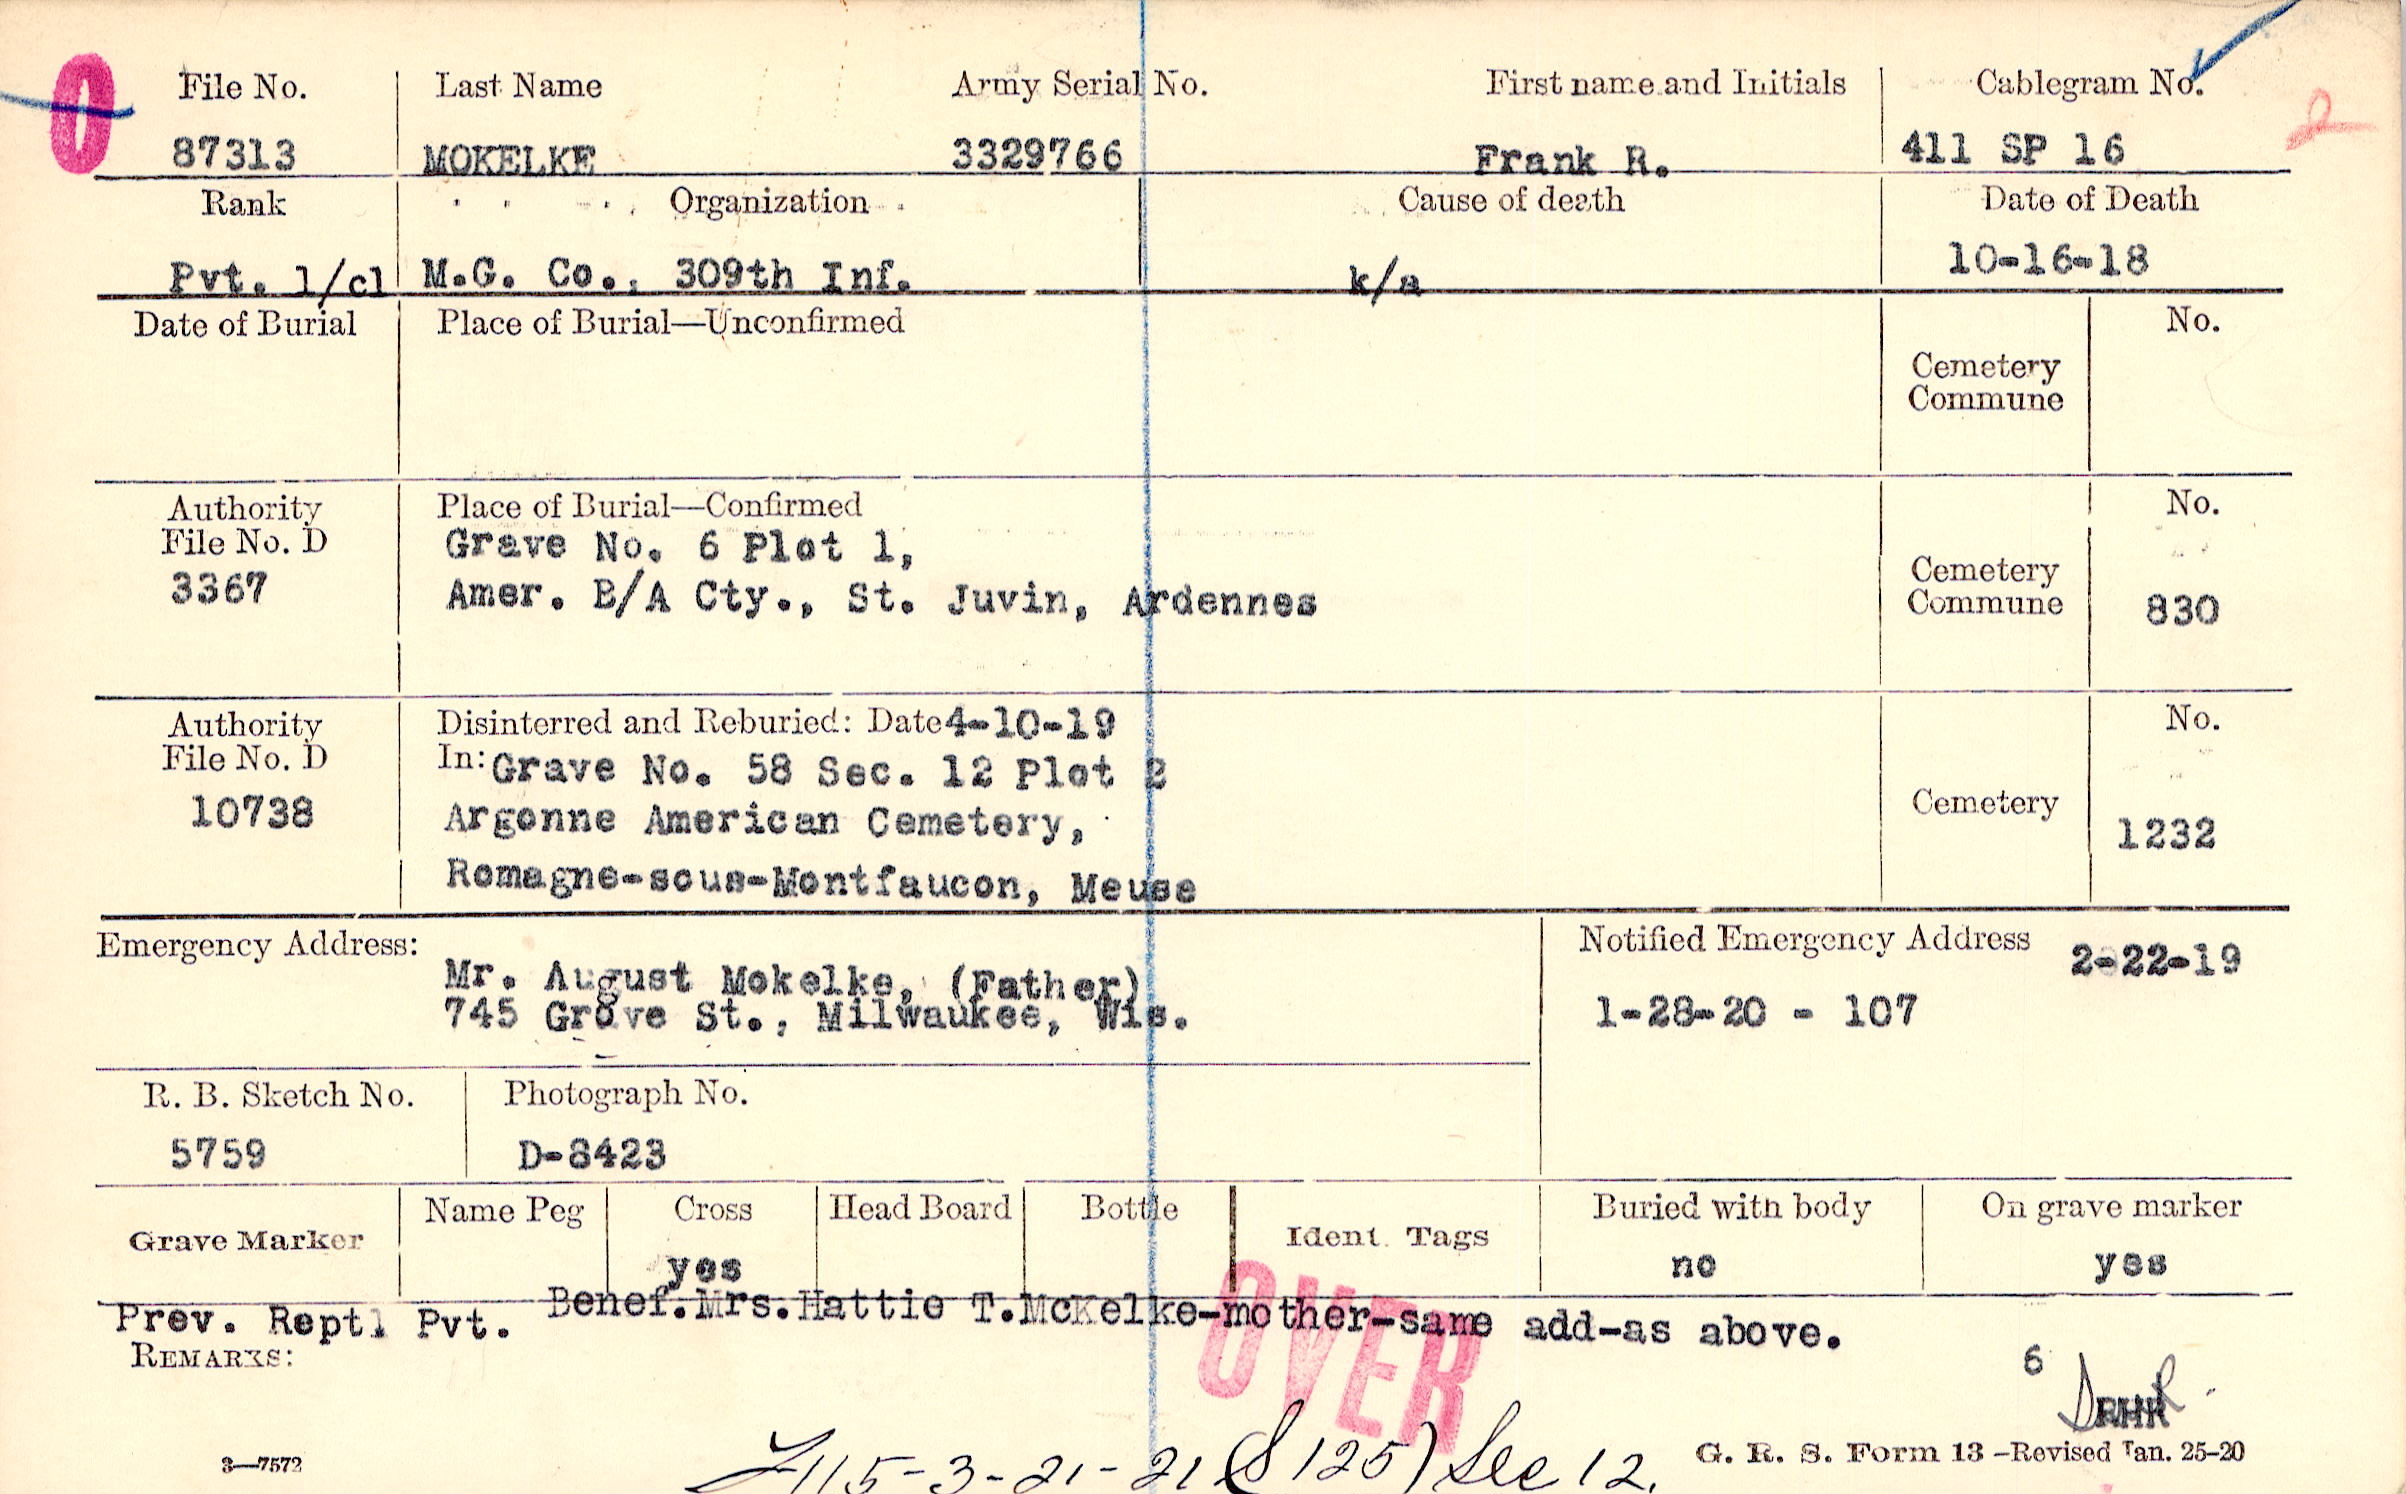 0
File No. Last Name Army Serial No. First name and Initials Cablegram No.
87313 MOKELKE 3329766 Frank R. 411 SP 16
2
Rank Organization Cause of death Date of Death
Pvt. 1/cl M.G. Co., 309th Inf. k/a 10-16-18
Date of Burial Place of Burial—Unconfirmed No.
Cemetery
Commune
Authority Place of Burial—Confirmed No.
File No. D Grave No. 6 Plot 1,
3367 Amer. B/A Cty., St. Juvin, Ardennes
Cemetery
Commune 830
Authority Disinterred and Reburied: Date 4-10-19 No.
File No. D In: Grave No. 58 Sec. 12 Plot 2
10738 Argonne American Cemetery, Cemetery 1232
Romagne-sous-Montfaucon, Meuse
Emergency Address: Notified Emergency Address 2-22-19
Mr. August Mokelke, (Father)
745 Grove St., Milwaukee, Wis. 1-28-20 - 107
R. B. Sketch No. Photograph No.
5759 D-8423
Grave Marker Name Peg Cross Head Board Bottle Ident. Tags Buried with body On grave marker
yes no yes
Prev. Reptl Pvt. Benef.Mrs.Hattie T.McKelke-mother-same add-as above.
REMARKS:
OVER
6
RHR
115-3-21-21 (S 125) Sec 12.
3—7572 G. R. S. Form 13 -Revised Jan. 25-20